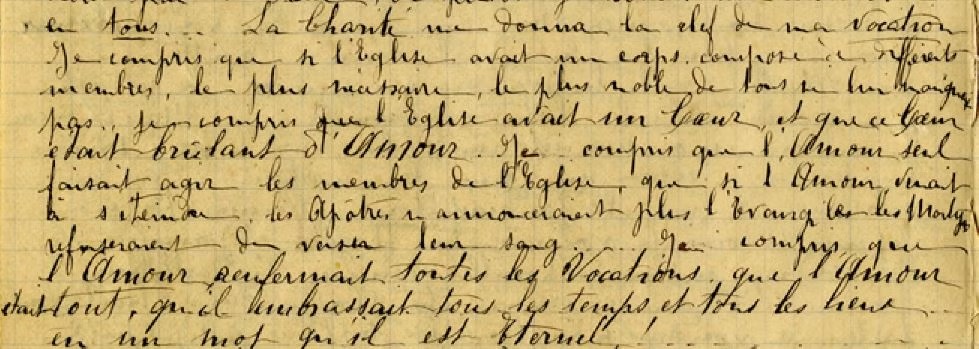 en tous... La Charité me donna la clef de ma vocation
Je compris que si l'Eglise avait un corps, composé de différents
membres, le plus nécessaire, le plus noble de tous ne lui manquait
pas, je compris que l'Eglise avait un Cœur, et que ce Cœur
était brûlant d'Amour. Je compris que l'Amour seul
faisait agir les membres de l'Eglise, que si l'Amour venait
à s'éteindre, les Apôtres n'annonceraient plus l'Evangile les Martyrs
refuseraient de verser leur sang..... Je compris que
l'Amour renfermait toutes les Vocations, que l'Amour
était tout, qu'il embrassait tous les temps et tous les lieux...
en un mot qu'il est Eternel!